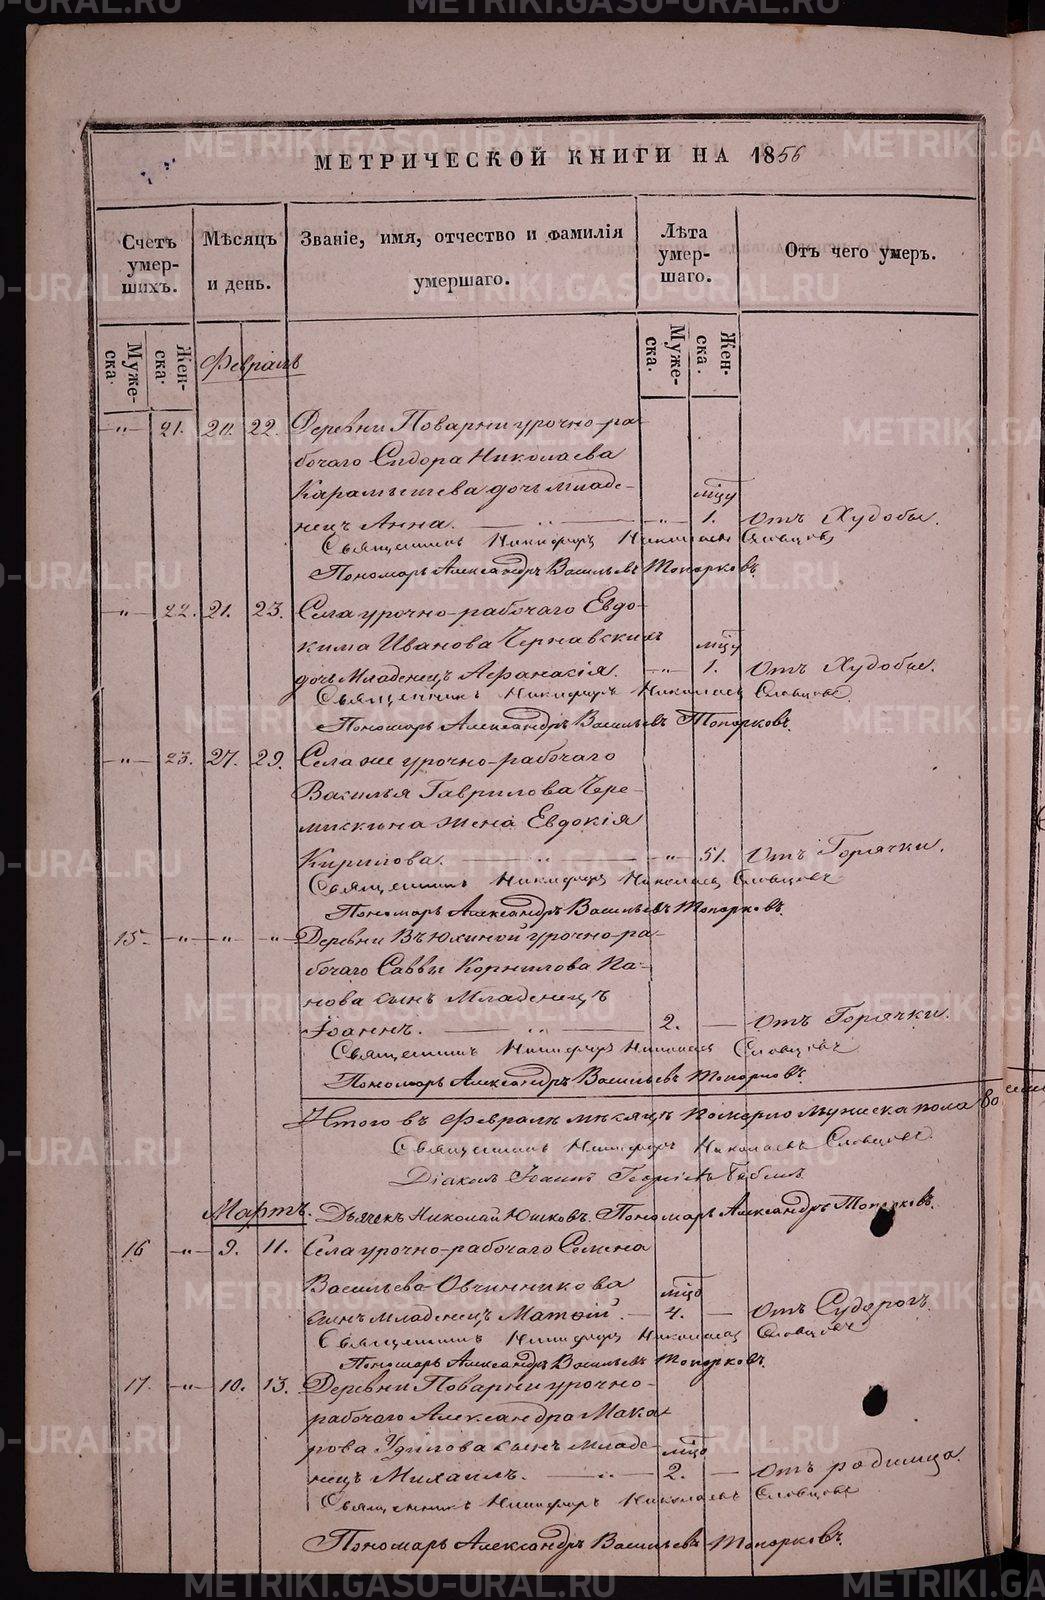 МЕТРИЧЕСКОЙ КНИГИ НА 1856
Счетъ умер-шихъ.
Мѣсяцъ и день.
Званіе, имя, отчество и фамилія умершаго.
Лѣта умер-шаго.
Отъ чего умеръ.
Муже-ска.
Жен-ска.
Муже-ска.
Жен-ска.
Февраль
„ 21. 20. 22. Деревни Поварни урочно-ра-
бочаго Сидора Николаева
Карамышева дочь младе-
нецъ Анна. „ 1. Отъ Худобы.
Священникъ Никифоръ Николаевъ Словцовъ
Пономарь Александръ Васильевъ Топорковъ.
„ 22. 21. 23. Села урочно-рабочаго Евдо-
кима Иванова Чернавскихъ
дочь Младенецъ Афанасія. „ 1. Отъ Худобы.
Священникъ Никифоръ Николаевъ Словцовъ
Пономарь Александръ Васильевъ Топорковъ.
„ 23. 27. 29. Села же урочно-рабочаго
Василья Гаврилова Чере-
мискина жена Евдокія
Кирилова. „ 51. Отъ Горячки.
Священникъ Никифоръ Николаевъ Словцовъ
Пономарь Александръ Васильевъ Топорковъ.
15. „ „ „ Деревни Вьюхиной урочно-ра-
бочаго Саввы Корнилова Па-
нова сынъ Младенецъ
Іоаннъ. „ 2. Отъ Горячки.
Священникъ Никифоръ Николаевъ Словцовъ
Пономарь Александръ Васильевъ Топорковъ.
Итого въ Февралѣ мѣсяцѣ померло мужеска пола во
Священникъ Никифоръ Николаевъ Словцовъ
Діаконъ Іоаннъ Георгіевъ
Мартъ. Дьячекъ Николай Юшковъ. Пономарь Александръ Топорковъ.
16 „ 9. 11. Села урочно-рабочаго Семена
Васильева Овчинникова
сынъ младенецъ Матѳій. 4. Отъ Судорогъ.
Священникъ Никифоръ Николаевъ Словцовъ
Пономарь Александръ Васильевъ Топорковъ.
17. „ 10. 13. Деревни Поварни урочно-
рабочаго Александра Мака-
рова сынъ младе-
нецъ Михаилъ. 2. Отъ родимца.
Священникъ Никифоръ Николаевъ Словцовъ
Пономарь Александръ Васильевъ Топорковъ.
METRIKI.GASO-URAL.RU